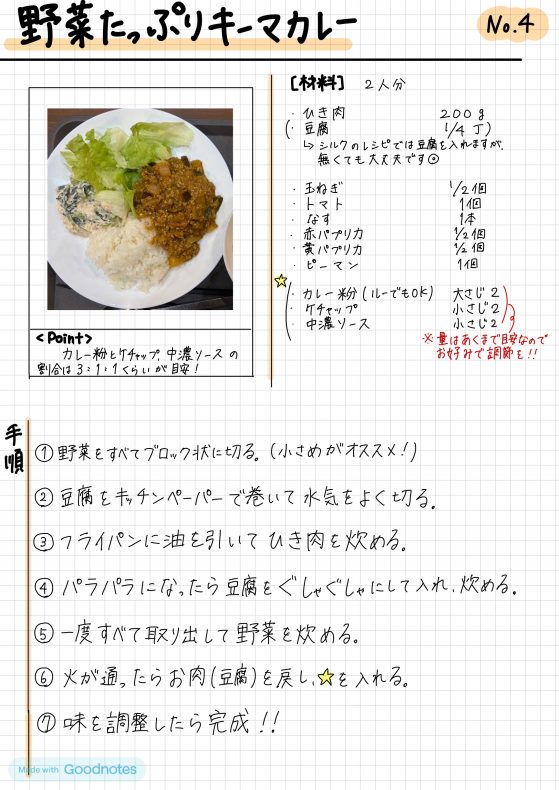 野菜たっぷりキーマカレー
No.4
[材料] 2人分
・ひき肉 200g
(・豆腐 1/4丁)
↳シルクのレシピでは豆腐を入れますが、
無くても大丈夫です☺
・玉ねぎ 1/2個
・トマト 1個
・なす 1本
・赤パプリカ 1/2個
・黄パプリカ 1/2個
・ピーマン 1個
・カレー粉(ルーでもOK) 大さじ2
・ケチャップ 小さじ2
・中濃ソース 小さじ2
※量はあくまで目安なので
お好みで調節を!!
<Point>
カレー粉とケチャップ、中濃ソースの
割合は3:1:1くらいが目安!
手順
①野菜をすべてブロック状に切る。(小さめがオススメ!)
②豆腐をキッチンペーパーで巻いて水気をよく切る。
③フライパンに油を引いてひき肉を炒める。
④パラパラになったら豆腐をぐしゃぐしゃにして入れ、炒める。
⑤一度すべて取り出して野菜を炒める。
⑥火が通ったらお肉(豆腐)を戻し、☆を入れる。
⑦味を調整したら完成!!
Made with Goodnotes